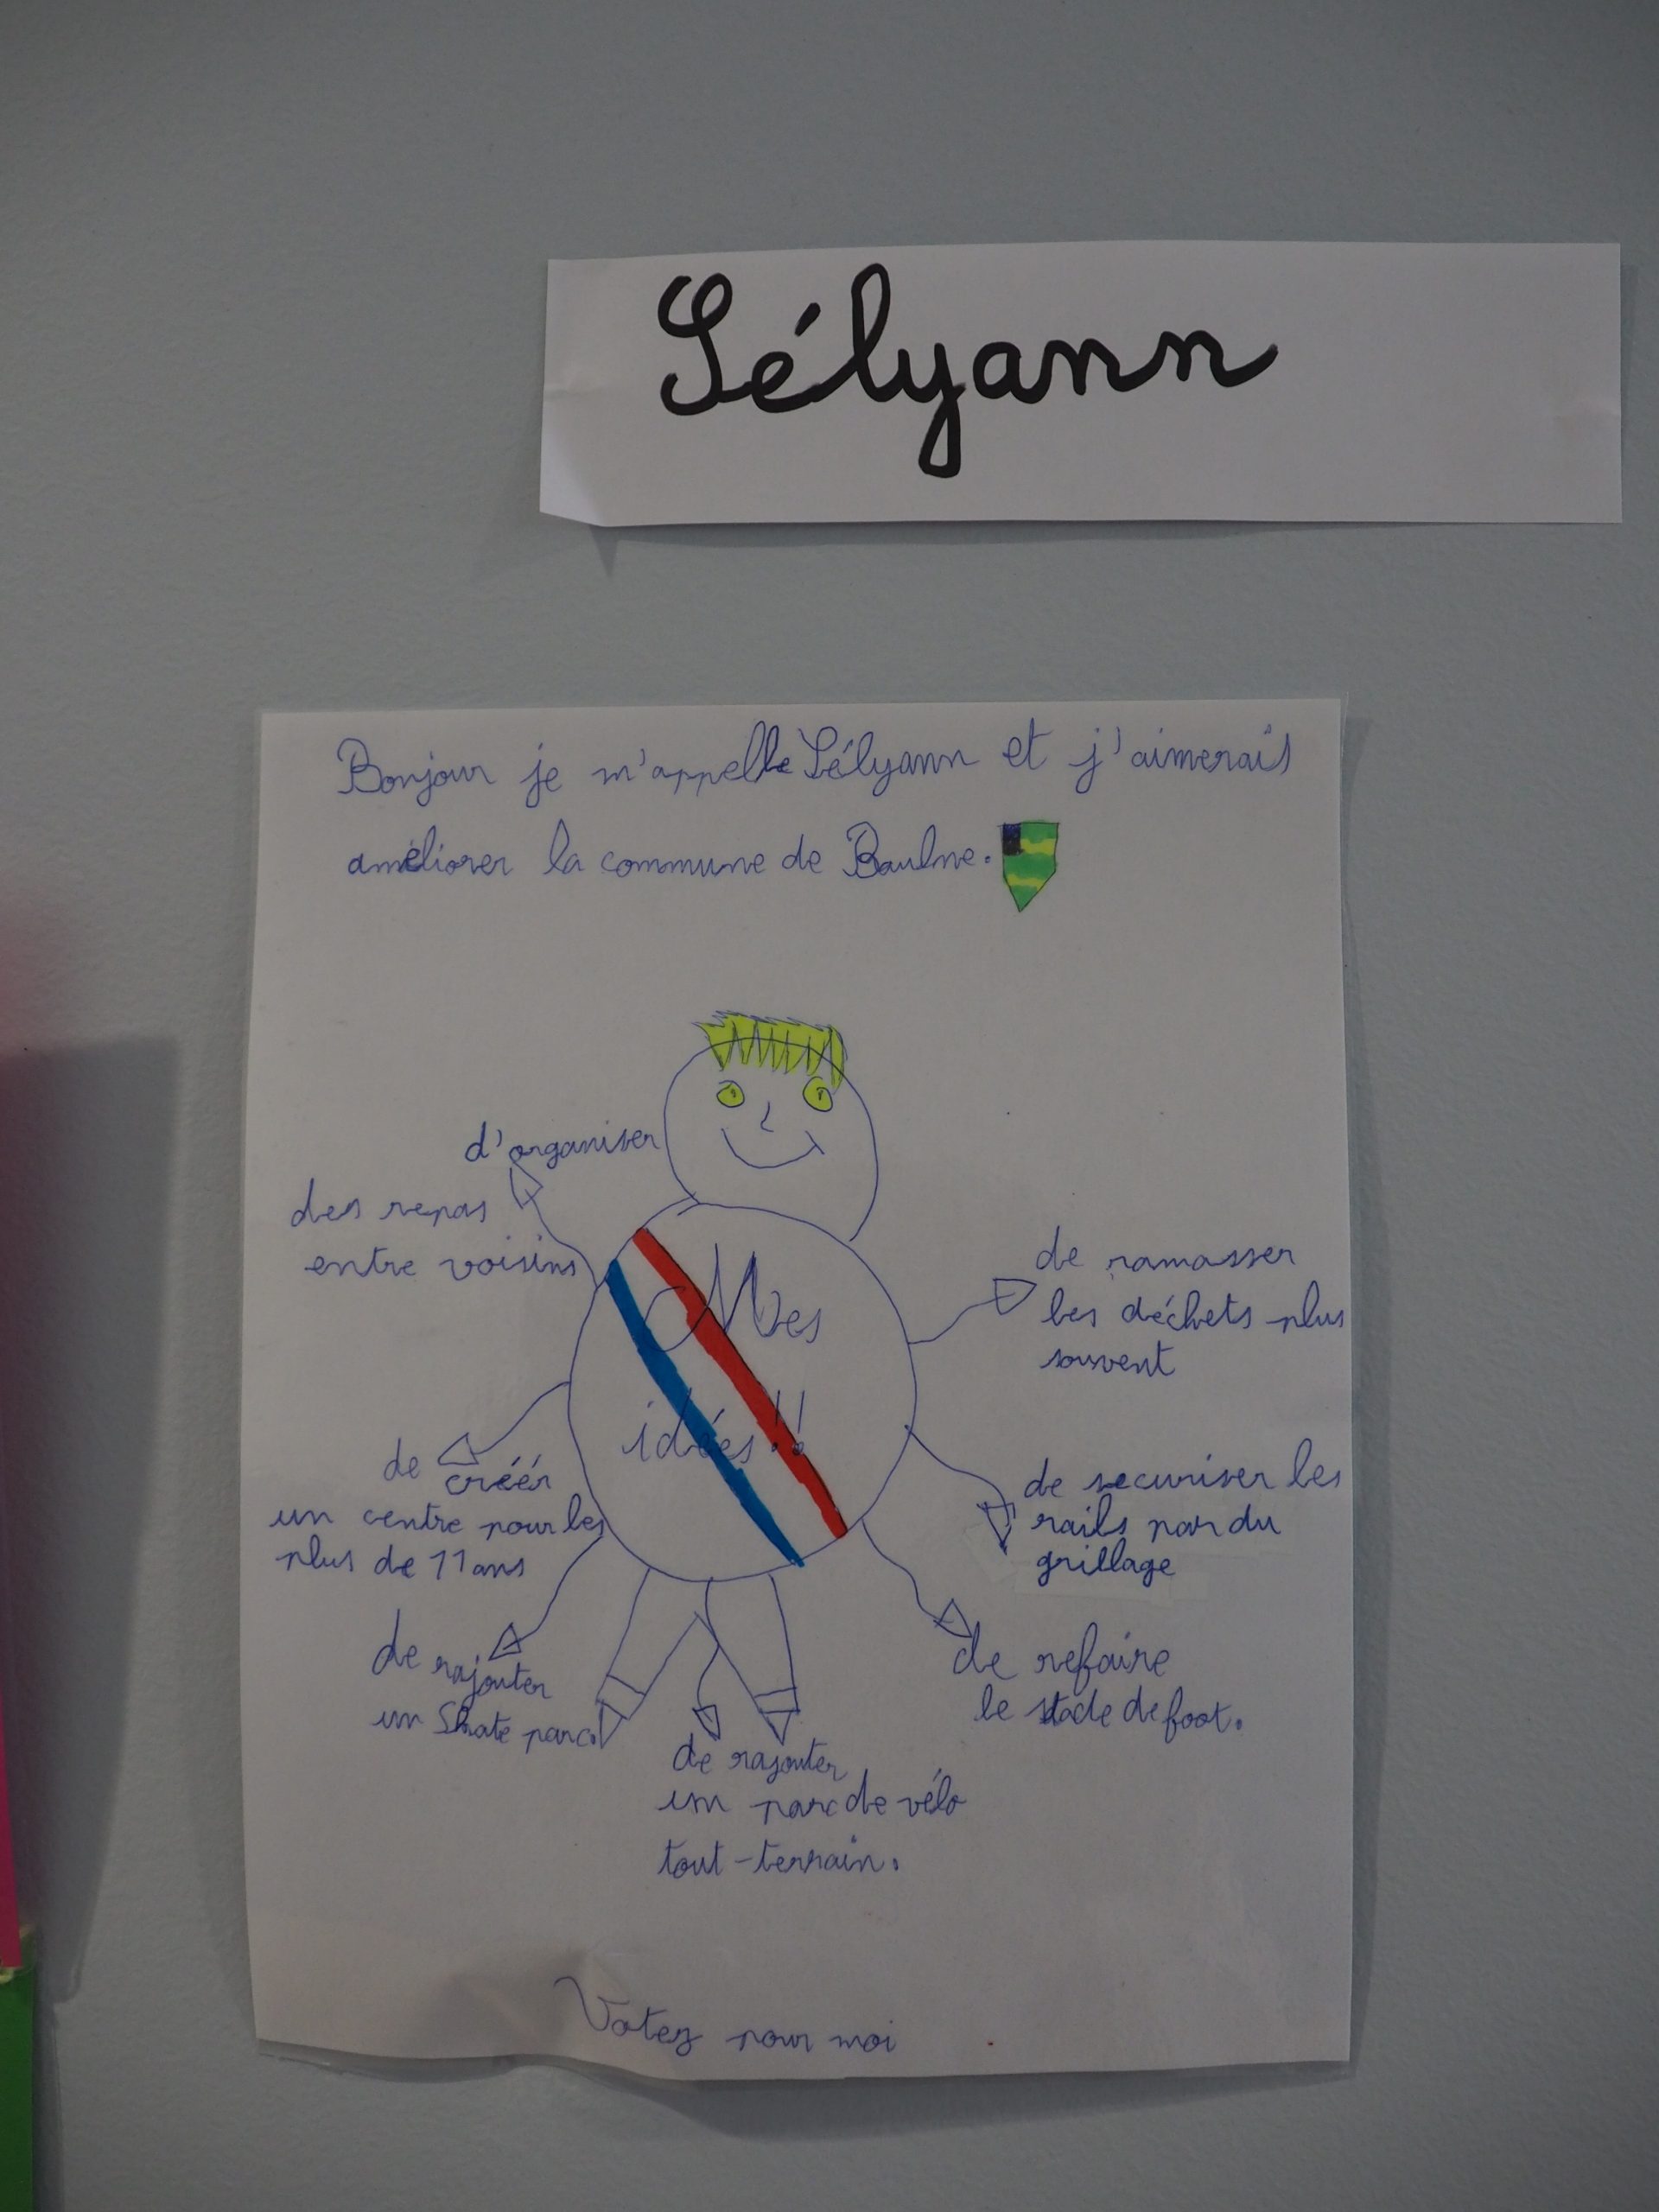 Sélyann
Bonjour je m'appelle Sélyann et j'aimerais
améliorer la commune de Baulne.
d'organiser
des repas
entre voisins
Mes
idées!!
de ramasser
les déchets plus
souvent
de créér
un centre pour les
plus de 11 ans
de securiser les
rails par du
grillage
de rajouter
un Skate parc.
de refaire
le stade de foot.
de rajouter
un parc de vélo
tout-terrain.
Votez pour moi